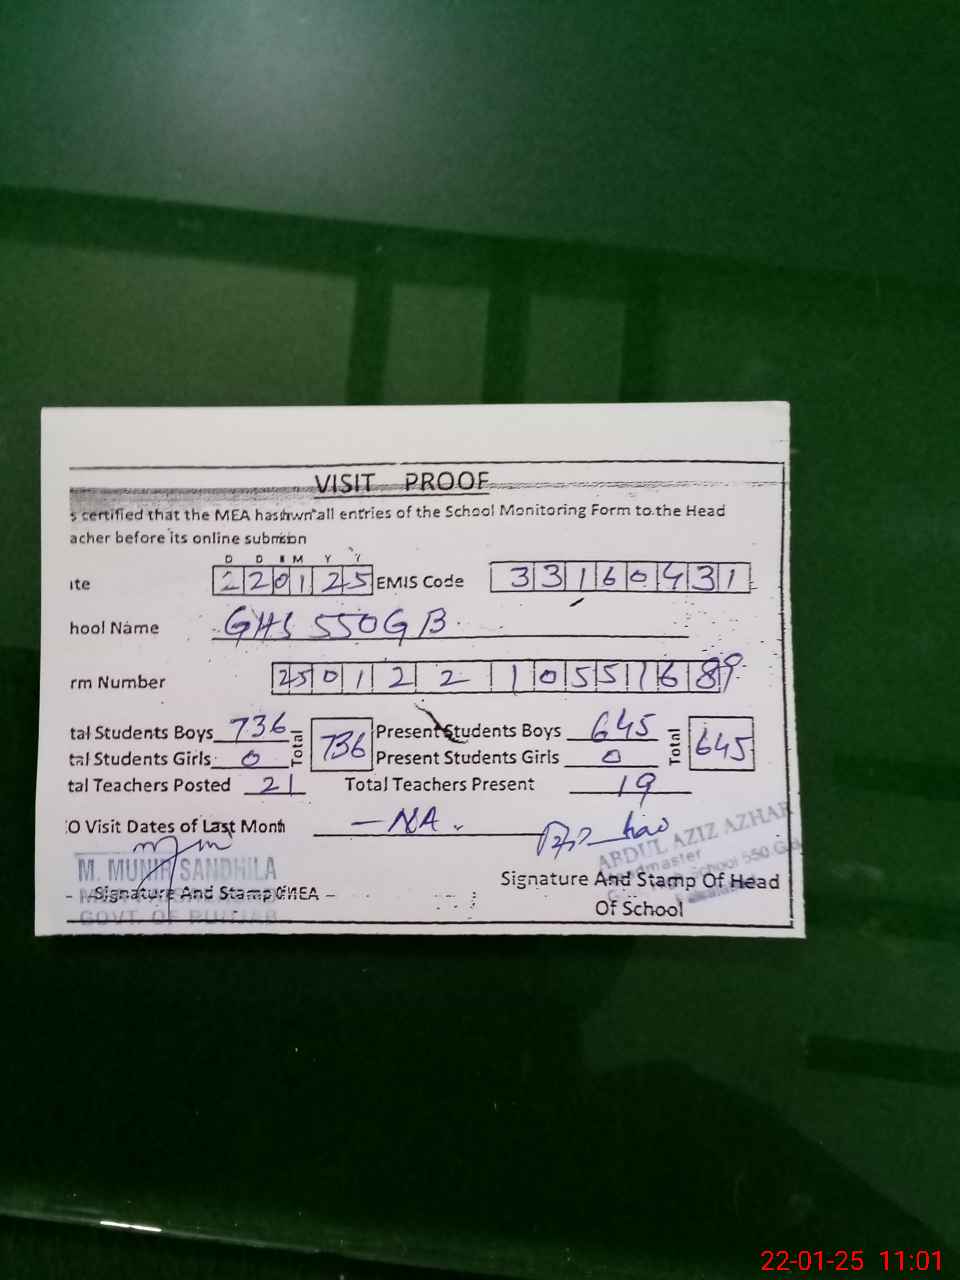 VISIT PROOF
s certified that the MEA has shwn all entries of the School Monitoring Form to the Head
acher before its online submision
D D M M Y Y
ate 220125 EMIS Code 33160431
hool Name GHS 550GB
rm Number 25012210551689
tal Students Boys 736 Total 736 Present Students Boys 645 Total 645
tal Students Girls 0 Present Students Girls 0
tal Teachers Posted 21 Total Teachers Present 19
EO Visit Dates of Last Month — NA.
M. MUNIR SANDHILA
ABDUL AZIZ AZHAR
Headmaster
School 550 G.B
Signature And Stamp Of MEA
Signature And Stamp Of Head
Of School
GOVT. OF PUNJAB
22-01-25 11:01